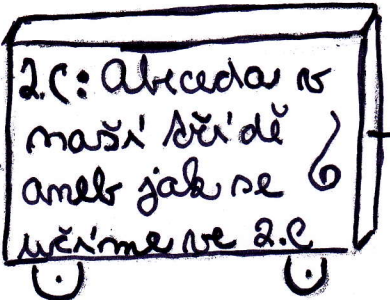 2.C: Abeceda v
naší třídě
aneb jak se
učíme ve 2.C